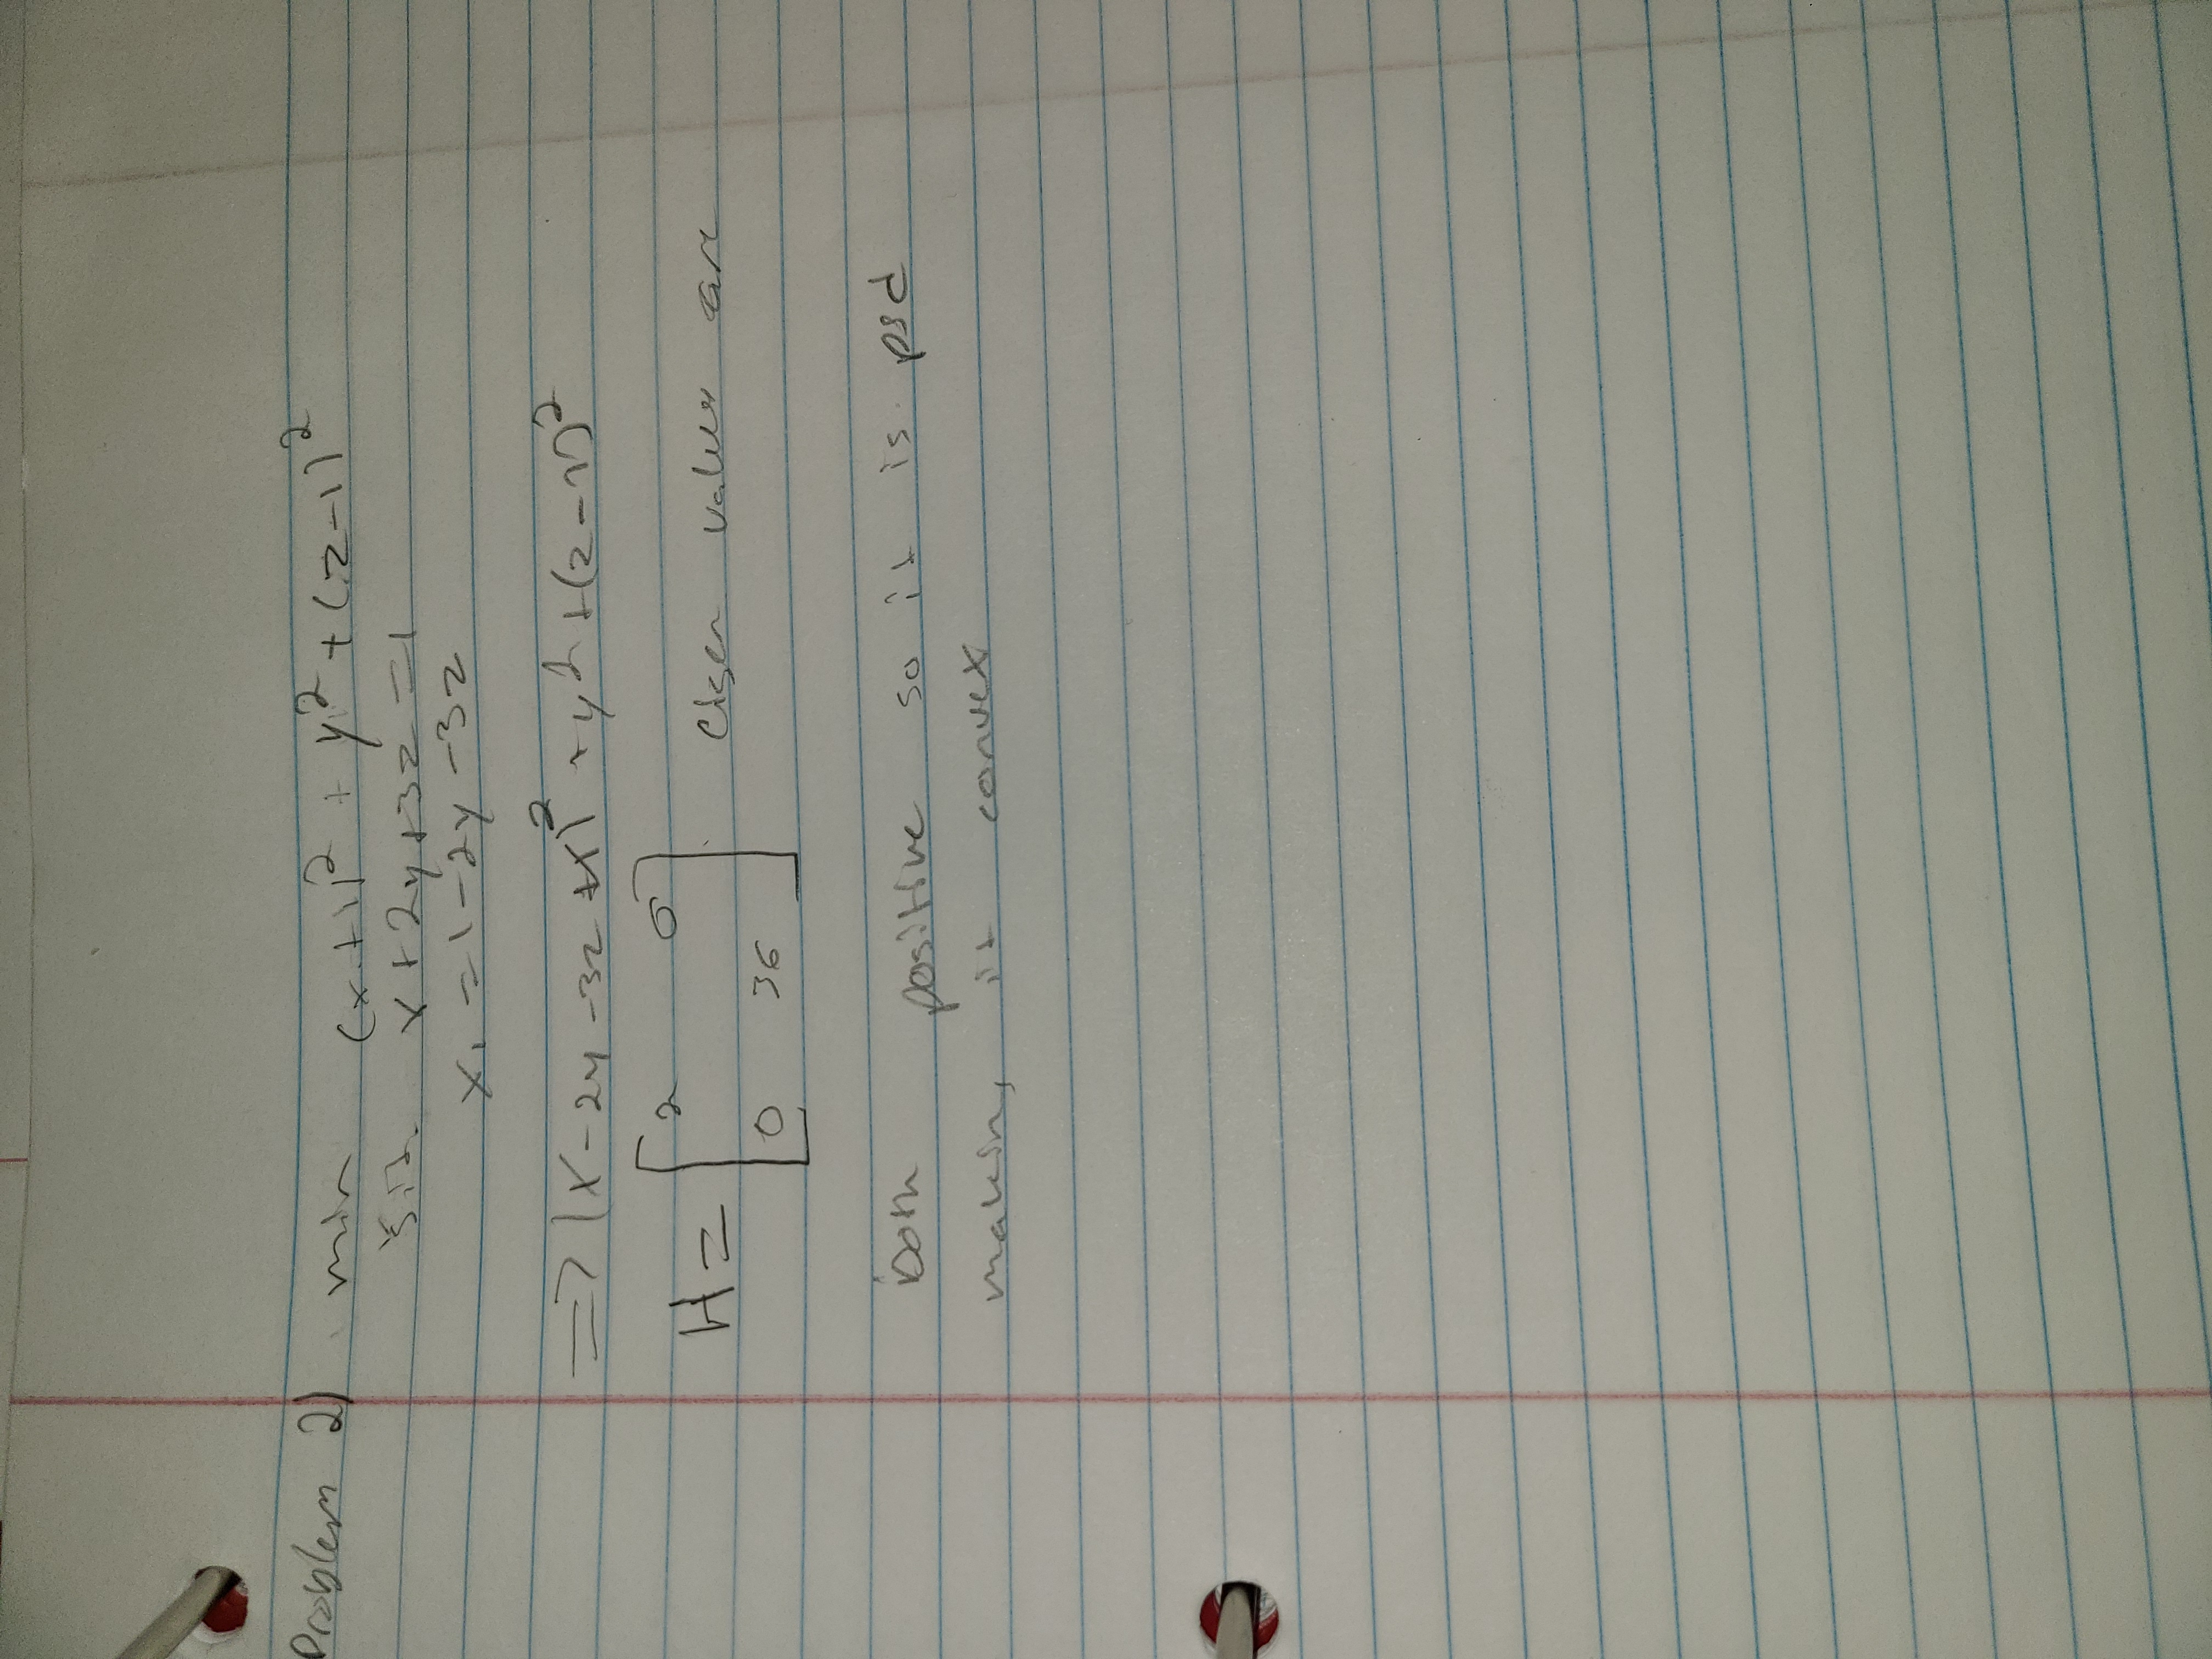 Problem 2) min (x+1)² + y² + (z-1)²
s.t. x+2y+3z=1
x₁ =1-2y-3z
=> (x-2y-3z+x)² + y² +(z-1)²
H= [2 0
0 36] Eigen values are
both positive so it is psd
making it convex